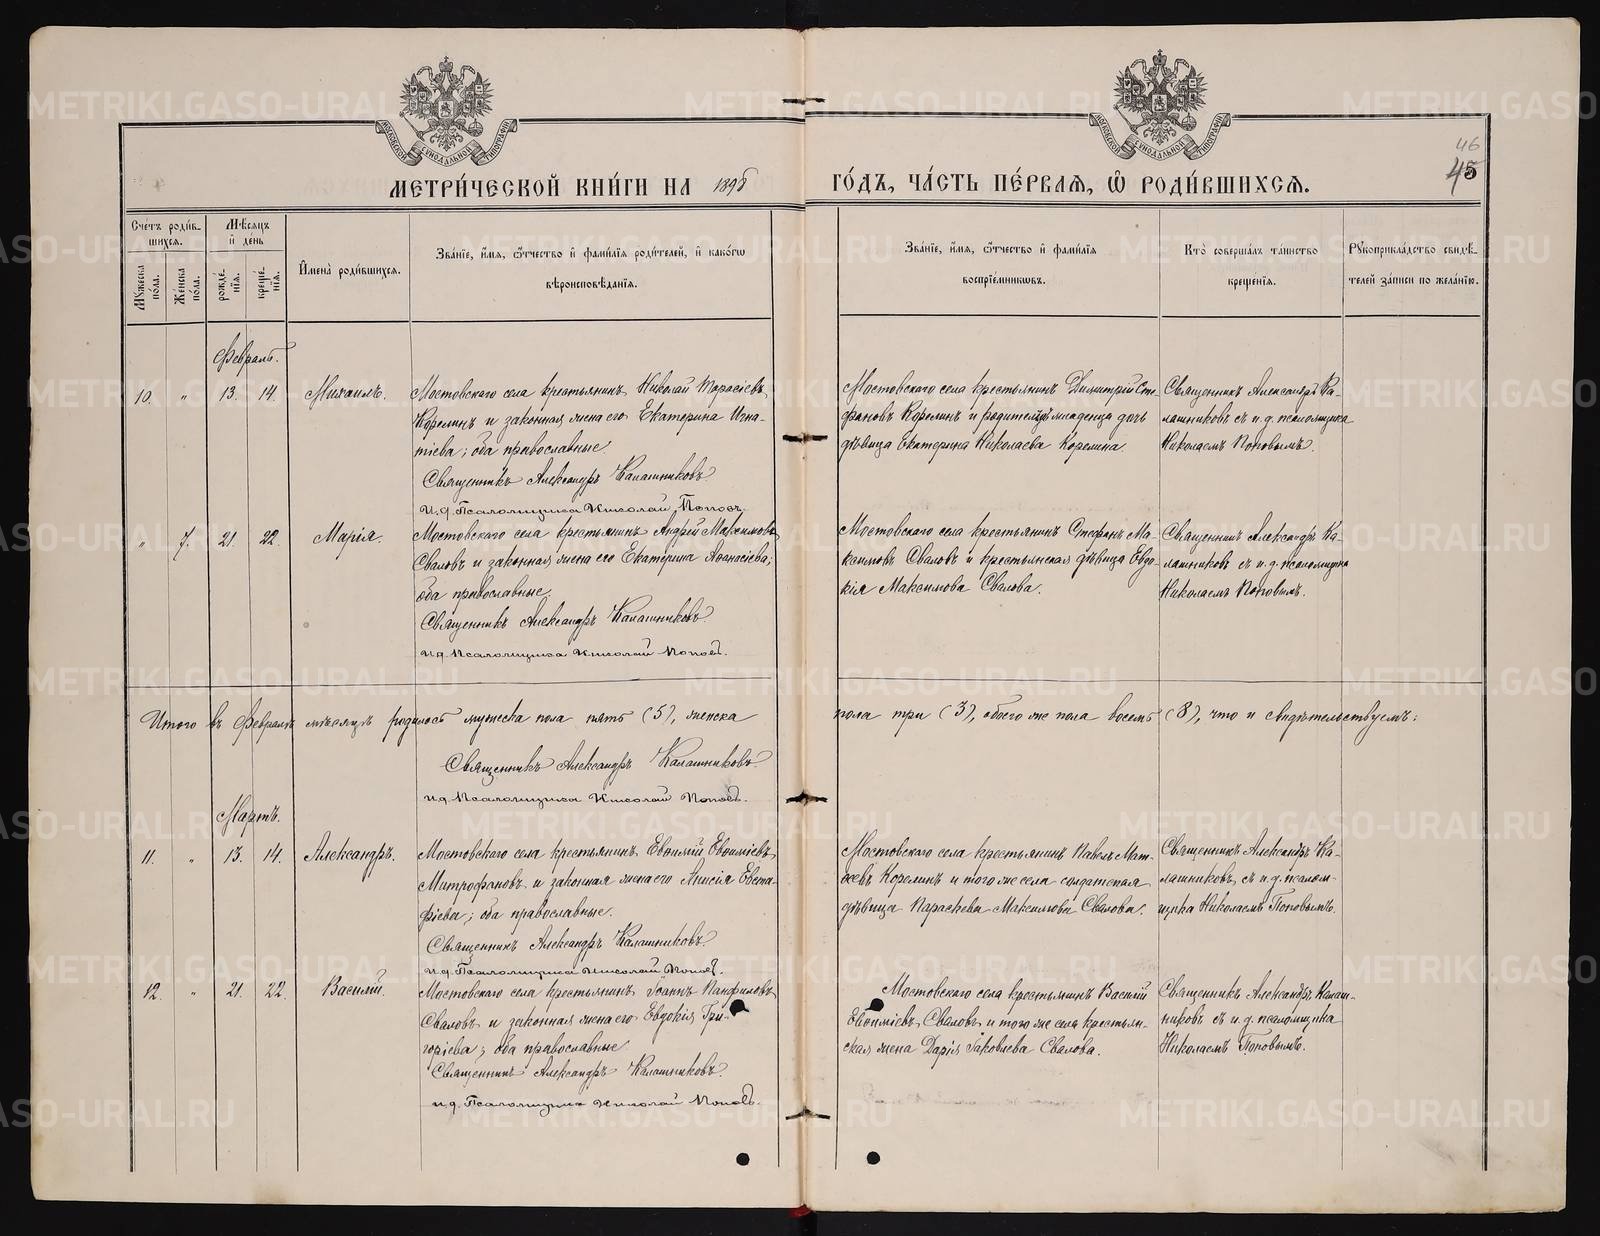 МЕТРИ́ЧЕСКОЙ КНИ́ГИ НА 1898
ГО́ДЪ, ЧА́СТЬ ПЕ́РВАѦ, Ѽ РОДИ́ВШИХСѦ.
46
45
МОСКОВСКОЙ СУНОДАЛЬНОЙ ТИПОГРАФІИ
МОСКОВСКОЙ СУНОДАЛЬНОЙ ТИПОГРАФІИ
Сче́тъ роди́в-
шихсѧ.
Мѣ́сѧцъ
и҆ де́нь
Мꙋ́жеска по́ла.
Же́нска по́ла.
рожде́-
нїѧ.
креще́-
нїѧ.
И҆мена̀ роди́вшихсѧ.
Зва́нїе, и҆́мѧ, ѻ҆́тчество и҆ фами́лїѧ роди́телей, и҆ како́гѡ
вѣроисповѣ́данїѧ.
Зва́нїе, и҆́мѧ, ѻ҆́тчество и҆ фами́лїѧ
воспрїе́мниковъ.
Кто̀ соверша́лъ та́инство
креще́нїѧ.
Рꙋкоприкла́дство свидѣ́-
телей за́писи по жела́нїю.
Февраль.
10. " 13. 14. Михаилъ.
Мостовскаго села крестьянинъ Николай Тарасіевъ
Корелинъ и законная жена его Екатерина Игна-
тіева; оба православные.
Священникъ Александръ Калашниковъ
и.д. Псаломщика Николай Поповъ.
Мостовскаго села крестьянинъ Димитрій Сте-
фановъ Корелинъ и родителей младенца дочь
дѣвица Екатерина Николаева Корелина.
Священникъ Александръ Ка-
лашниковъ съ и.д. псаломщика
Николаемъ Поповымъ.
" 7. 21. 22. Марія.
Мостовскаго села крестьянинъ Андрей Максимовъ
Сваловъ и законная жена его Екатерина Аѳанасіева;
оба православные.
Священникъ Александръ Калашниковъ
и.д. Псаломщика Николай Поповъ.
Мостовскаго села крестьянинъ Стефанъ Ма-
ксимовъ Сваловъ и крестьянская дѣвица Евдо-
кія Максимова Свалова.
Священникъ Александръ Ка-
лашниковъ съ и.д. псаломщика
Николаемъ Поповымъ.
Итого въ Февралѣ мѣсяцѣ родилось мужеска пола пять (5), женска
пола три (3), обоего же пола восемь (8), что и свидѣтельствуемъ:
Священникъ Александръ Калашниковъ
и.д. Псаломщика Николай Поповъ.
Мартъ.
11. " 13. 14. Александръ.
Мостовскаго села крестьянинъ Евѳимій Евѳиміевъ
Митрофановъ и законная жена его Анисія Евста-
фіева; оба православные.
Священникъ Александръ Калашниковъ
и.д. Псаломщика Николай Поповъ.
Мостовскаго села крестьянинъ Павелъ Мат-
ѳеевъ Корелинъ и того же села солдатская
дѣвица Параскева Максимова Свалова.
Священникъ Александръ Ка-
лашниковъ съ и.д. псалом-
щика Николаемъ Поповымъ.
12. " 21. 22. Василій.
Мостовскаго села крестьянинъ Іоаннъ Панфиловъ
Сваловъ и законная жена его Евдокія Гри-
горіева; оба православные
Священникъ Александръ Калашниковъ
и.д. Псаломщика Николай Поповъ.
Мостовскаго села крестьянинъ Василій
Евѳиміевъ Сваловъ и того же села крестьян-
ская жена Дарія Іаковлева Свалова.
Священникъ Александръ Калаш-
никовъ съ и.д. псаломщика
Николаемъ Поповымъ.
METRIKI.GASO-URAL.RU